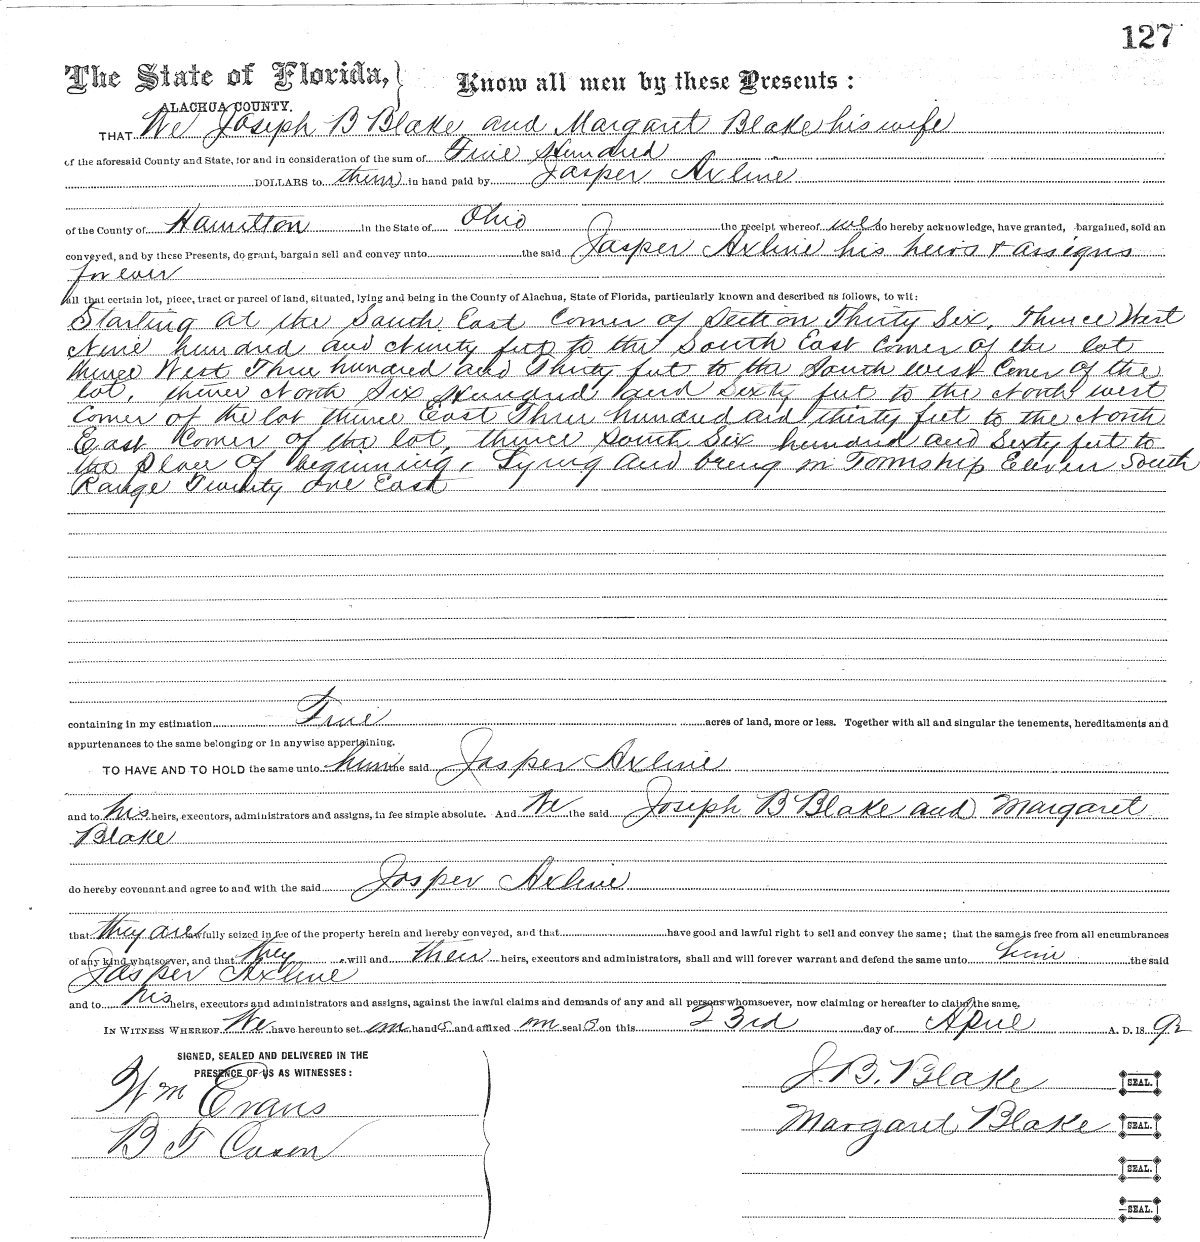 127
The State of Florida,
ALACHUA COUNTY.
Know all men by these Presents:
THAT We Joseph B Blake and Margaret Blake his wife
of the aforesaid County and State, for and in consideration of the sum of Five Hundred
DOLLARS to them in hand paid by Jasper Axline
of the County of Hamilton in the State of Ohio the receipt whereof we do hereby acknowledge, have granted, bargained, sold an
conveyed, and by these Presents, do grant, bargain sell and convey unto the said Jasper Axline his heirs & assigns
forever
all that certain lot, piece, tract or parcel of land, situated, lying and being in the County of Alachua, State of Florida, particularly known and described as follows, to wit:
Starting at the South East Corner of Section Thirty Six, Thence West
Nine hundred and Ninety feet to the South East Corner of the lot
thence West Three hundred and Thirty feet to the South west Corner of the
lot, thence North Six Hundred and Sixty feet to the North west
Corner of the lot thence East Three hundred and thirty feet to the North
East Corner of the lot, thence South Six hundred and Sixty feet to
the place of beginning, Lying and being in Township Eleven South
Range Twenty One East
containing in my estimation Five acres of land, more or less. Together with all and singular the tenements, hereditaments and
appurtenances to the same belonging or in anywise appertaining.
TO HAVE AND TO HOLD the same unto him the said Jasper Axline
and to his heirs, executors, administrators and assigns, in fee simple absolute. And We the said Joseph B Blake and Margaret
Blake
do hereby covenant and agree to and with the said Jasper Axline
that they are lawfully seized in fee of the property herein and hereby conveyed, and that have good and lawful right to sell and convey the same; that the same is free from all encumbrances
of any kind whatsoever, and that they will and their heirs, executors and administrators, shall and will forever warrant and defend the same unto him the said
Jasper Axline
and to his heirs, executors and administrators and assigns, against the lawful claims and demands of any and all persons whomsoever, now claiming or hereafter to claim the same.
IN WITNESS WHEREOF We have hereunto set our hands and affixed our seals on this 23rd day of April A. D. 1892
SIGNED, SEALED AND DELIVERED IN THE
PRESENCE OF US AS WITNESSES:
Wm Evans
B T Cason
J. B. Blake SEAL.
Margaret Blake SEAL.
SEAL.
SEAL.